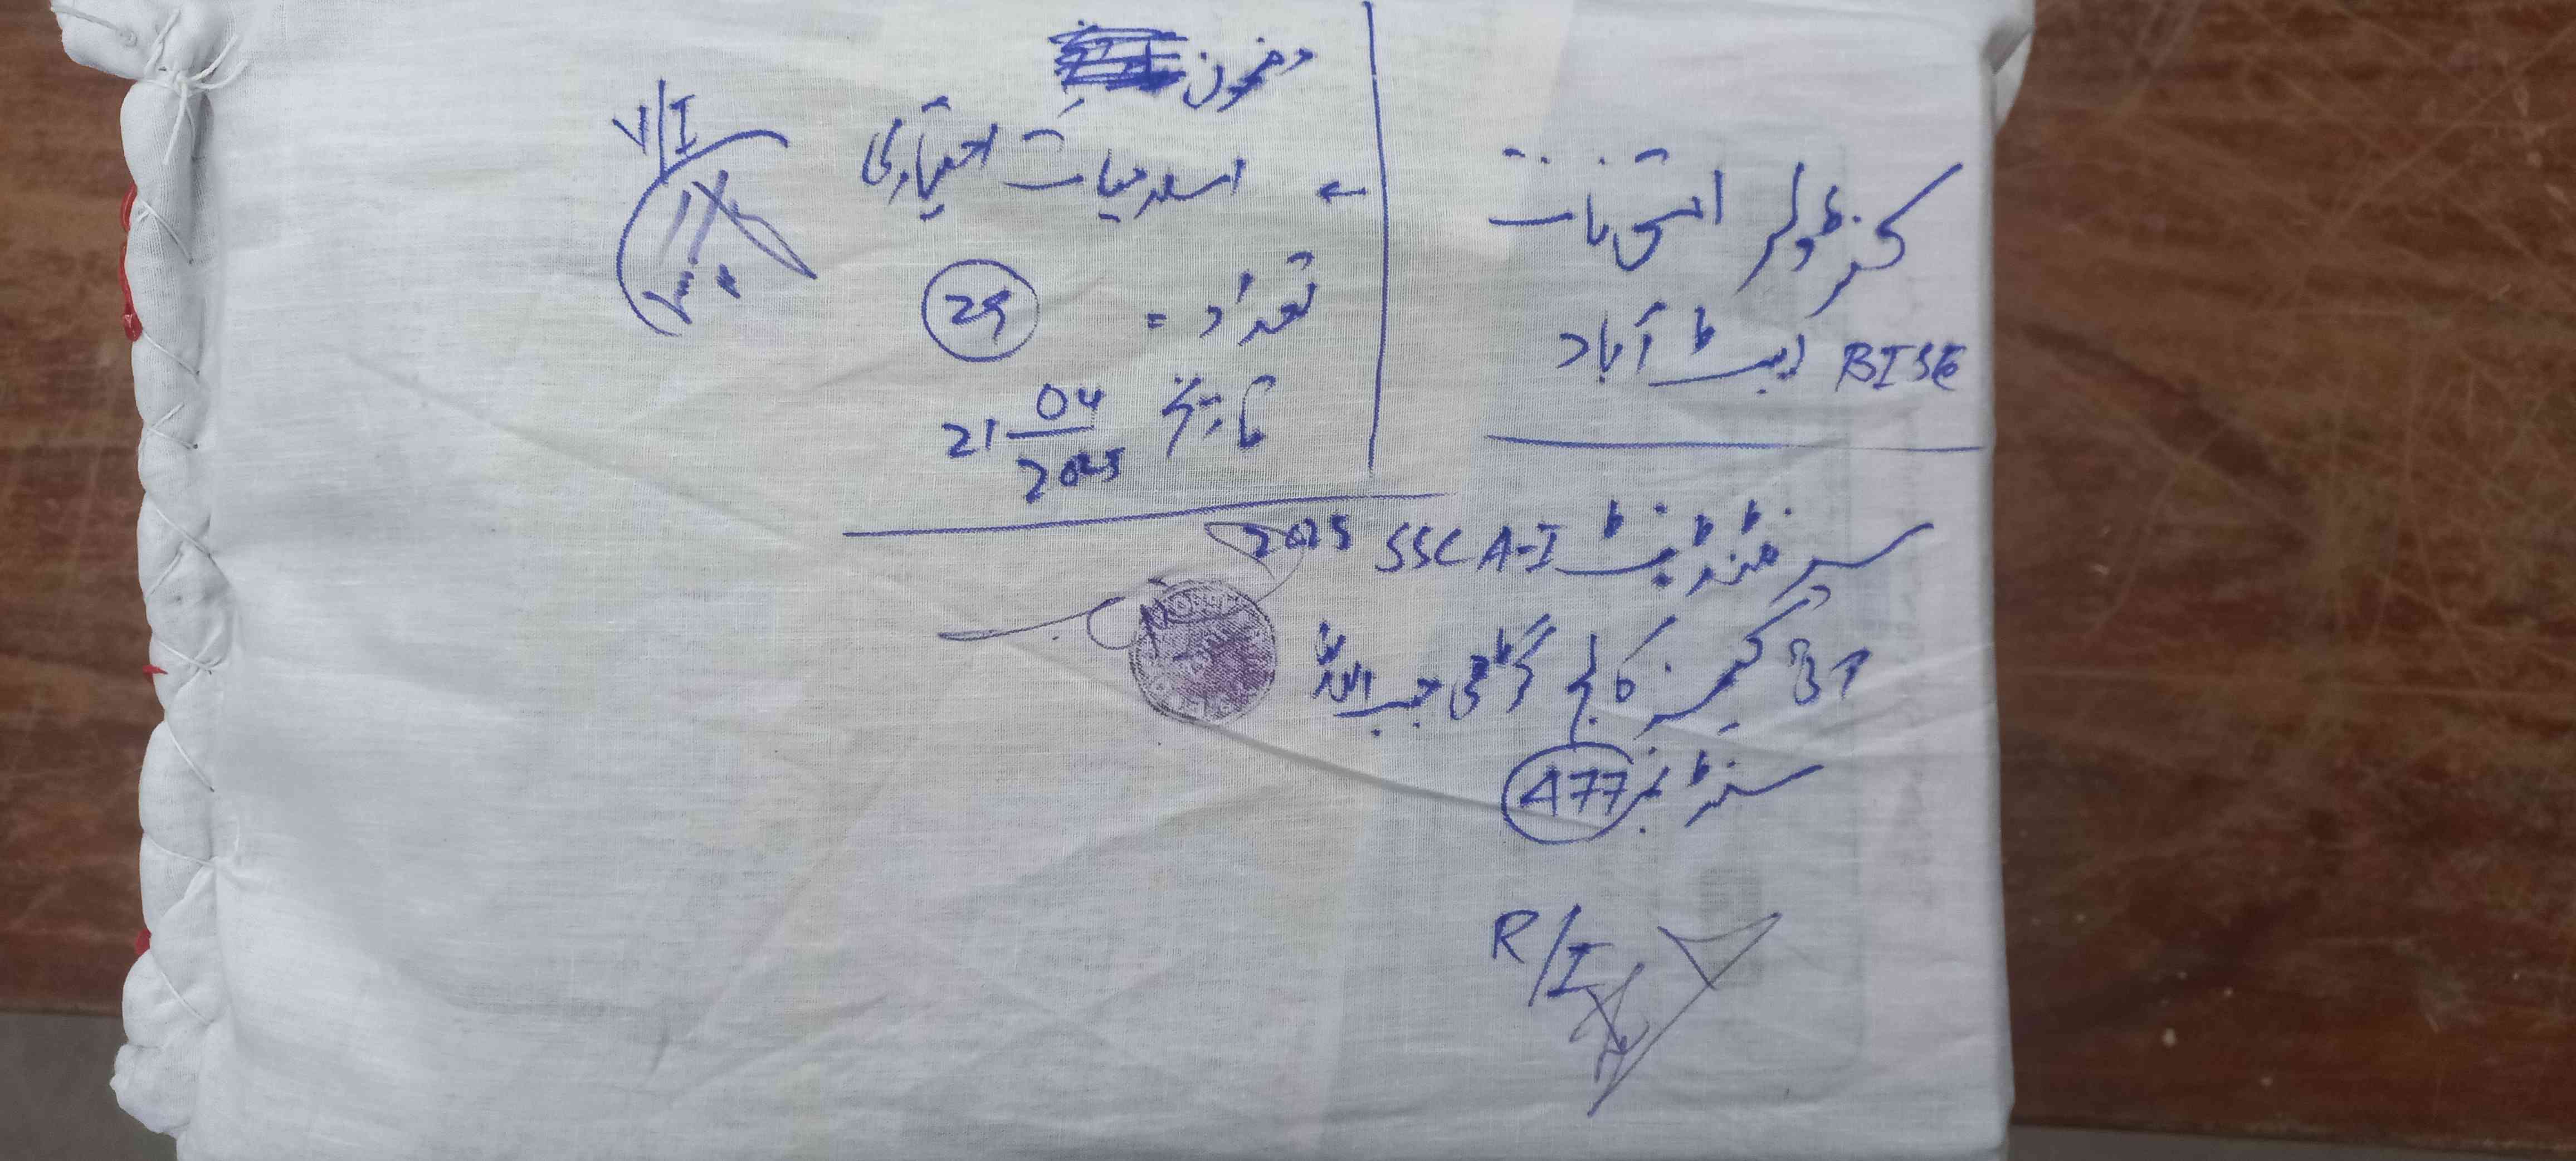 کنٹرولر امتحانات
BISE ایبٹ آباد
مضمون
← اسلامیات اختیاری
تعداد = 29
تاریخ 21 04/2025
V/I
سپرنٹنڈنٹ SSC A-I 2025
کیمز کالج گڑھی حبیب اللہ
سنٹر نمبر 477
R/I